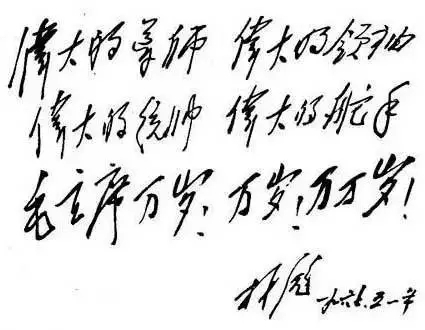 偉大的导师 偉大的领袖
偉大的统帅 偉大的舵手
毛主席万岁！万岁！万万岁！
林彪 一九六七.五.一节